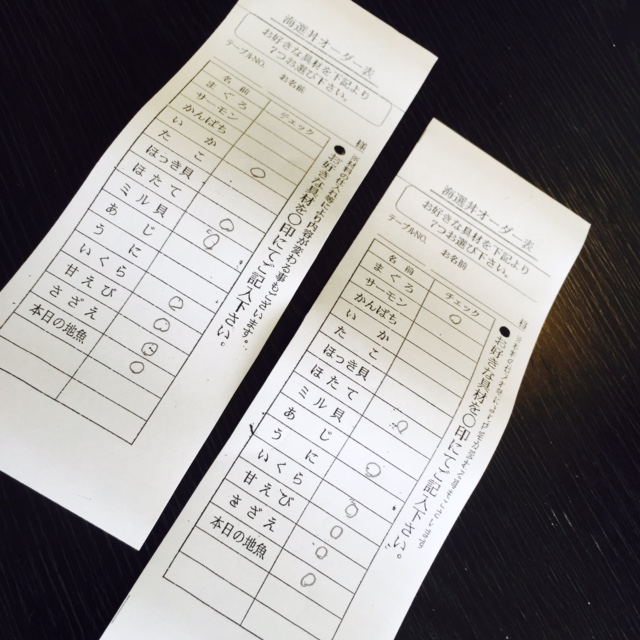 海選丼オーダー表
お好きな具材を下記より
7つお選び下さい。
テーブルNO. お名前 様
名前 チェック
まぐろ
サーモン
かんぱち
いか
たこ
ほっき貝
ほたて
ミル貝
あじ
うに
いくら
甘えび
さざえ
本日の地魚
●お好きな具材を〇印にてご記入下さい。
海選丼オーダー表
お好きな具材を下記より
7つお選び下さい。
テーブルNO. お名前 様
名前 チェック
まぐろ
サーモン
かんぱち
いか
たこ
ほっき貝
ほたて
ミル貝
あじ
うに
いくら
甘えび
さざえ
本日の地魚
●お好きな具材を〇印にてご記入下さい。